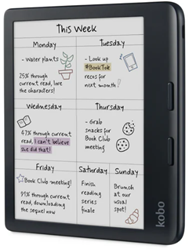 This Week
Monday
- Water plants
25% through
current read, love
the characters!
Tuesday
- Look up
#BookTok
recs for
next month!
Wednesday
47% through current
read, I can't believe
she did that!
Thursday
- Grab
snacks for
Book Club
meeting!
Friday
Book Club meeting!
91% through current
read, downloading
the sequel now
Saturday
Finish
reading
series
finale
Sunday
Brunch
at our
usual
spot!
kobo